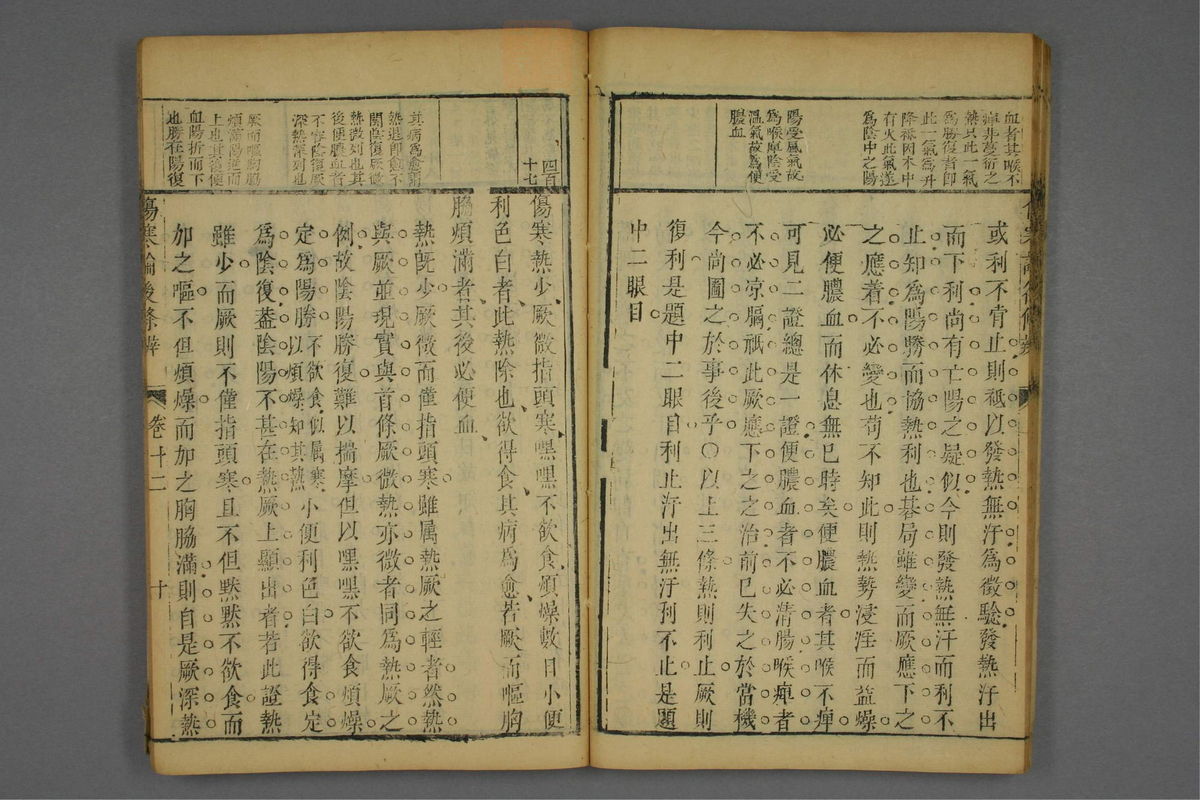 血者其喉不
痺非蔓衍之
熱只此一氣
為勝復者即
此一氣為升
降祿因本中
有火此氣遂
為陰中之陽
陽受風氣故
為喉痺陰受
濕氣故為便
膿血
或利不肯止則祗以發熱無汗為徵驗發熱汗出
而下利尚有亡陽之疑似今則發熱無汗而利不
止知為陽勝而協熱利也碁局雖變而厥應下之
之應着不必變也苟不知此則熱勢浸淫而益燥
必便膿血而休息無已時矣便膿血者其喉不痺
可見二證總是一證便膿血者不必清腸喉痺者
不必凉膈祗此厥應下之之治前已失之於當機
今尚圖之於事後乎○以上三條熱則利止厥則
復利是題中二眼目利止汗出無汗利不止是題
中二眼目
四百
十七
其病為愈謂
熱退即愈不
關陰復厥微
熱微列也其
後便膿血者
不容陰復厥
深熱深列也
厥而嘔胸脇
煩滿陽逆而
上也其後便
血陽折而下
也勝在陽復
傷寒熱少厥微指頭寒嘿嘿不欲食煩燥數日小便
利色白者此熱除也欲得食其病為愈若厥而嘔胸
脇煩滿者其後必便血
熱旣少厥微而僅指頭寒雖属熱厥之輕者然熱
與厥並現實與首條厥微熱亦微者同為熱厥之
例故陰陽勝復難以揣摩但以嘿嘿不欲食煩燥
定為陽勝不欲食似属寒以煩燥知其熱小便利色白欲得食定
為陰復葢陰陽不甚在熱厥上顯出者若此證熱
雖少而厥則不僅指頭寒且不但黙黙不欲食而
加之嘔不但煩燥而加之胸脇滿則自是厥深熱
傷寒論後條辨
卷十二
十